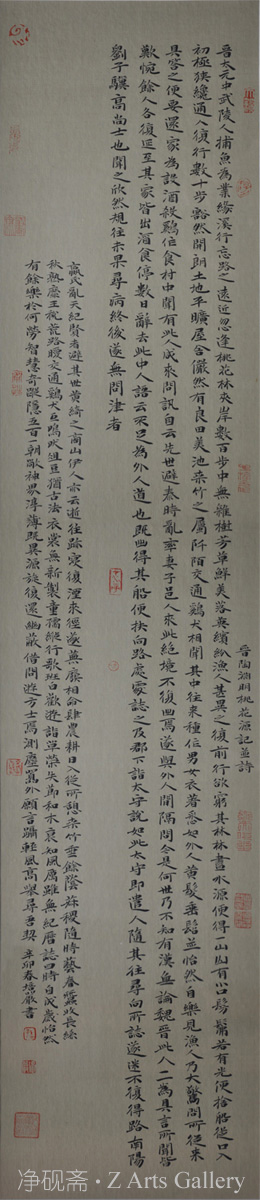 晉陶淵明桃花源記並詩
晉太元中武陵人捕魚為業緣溪行忘路之遠近忽逢桃花林夾岸數百步中無雜樹芳草鮮美落英繽紛漁人甚異之復前行欲窮其林林盡水源便得一山山有小口髣髴若有光便捨船從口入
初極狹纔通人復行數十步豁然開朗土地平曠屋舍儼然有良田美池桑竹之屬阡陌交通鷄犬相聞其中往來種作男女衣著悉如外人黃髮垂髫並怡然自樂見漁人乃大驚問所從來
具答之便要還家為設酒殺鷄作食村中聞有此人咸來問訊自云先世避秦時亂率妻子邑人來此絕境不復出焉遂與外人間隔問今是何世乃不知有漢無論魏晉此人一一為具言所聞皆
歎惋餘人各復延至其家皆出酒食停數日辭去此中人語云不足為外人道也既出得其船便扶向路處處誌之及郡下詣太守說如此太守即遣人隨其往尋向所誌遂迷不復得路南陽
劉子驥高尚士也聞之欣然規往未果尋病終後遂無問津者
嬴氏亂天紀賢者避其世黃綺之商山伊人亦云逝往跡寖復湮來逕遂蕪廢相命肆農耕日入從所憩桑竹垂餘蔭菽稷隨時藝春蠶收長絲
秋熟靡王稅荒路曖交通鷄犬互鳴吠俎豆猶古法衣裳無新製童孺縱行歌班白歡遊詣草榮識節和木衰知風厲雖無紀曆誌四時自成歲怡然
有餘樂於何勞智慧奇蹤隱五百一朝敞神界淳薄既異源旋復還幽蔽借問遊方士焉測塵囂外願言躡輕風高舉尋吾契 辛卯春 書
净砚斋·Z Arts Gallery